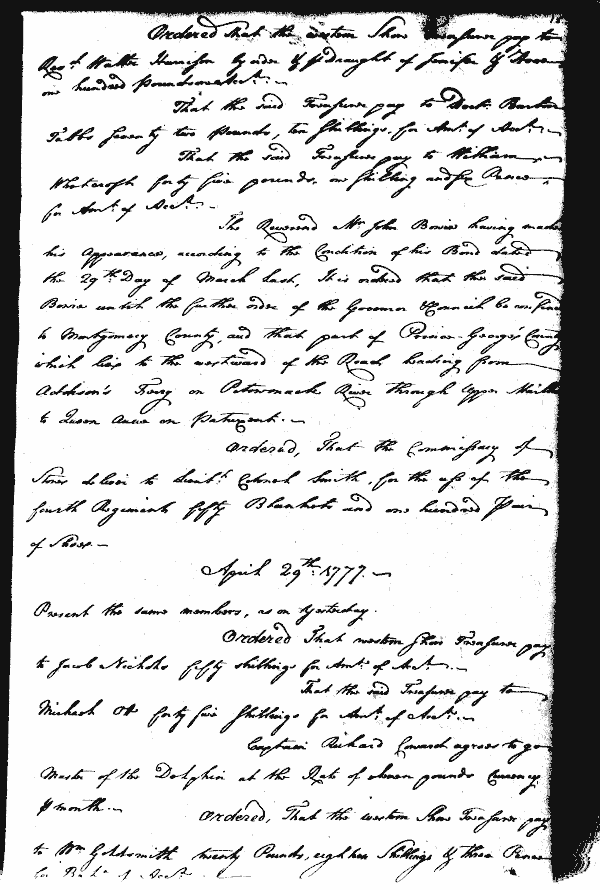 Ordered That the western Shore Treasurer pay to
Revd. Walter Harrison by order of pr. Draught of Jenifer &
one hundred Pounds on Acct.
That the said Treasurer pay to Doctr. Barton
Tabbs Seventy two Pounds, ten Shillings for Amt. of Acct.
That the said Treasurer pay to William
Whetcroft forty five pounds, one Shilling and six Pence
for Amt. of Acct.
The Reverend Mr. John Bowie having made
his Appearance, according to the Condition of his Bond dated
the 29th. Day of March Last, It is ordered that the said
Bowie until the further order of the Governor & Council be confined
to Montgomery County, and that part of Prince George's County
which lies to the westward of the Road leading from
Addison's Ferry on Potowmack River through upper Marlbro
to Queen Anne on Patuxent.
Ordered, That the Commissary of
Stores deliver to Lieutt. Colonel Smith, for the use of the
fourth Regiment fifty Blankets and one hundred Pair
of Shoes.
April 29th. 1777.
Present the same members, as on Yesterday.
Ordered That western Shore Treasurer pay
to Jacob Nichols fifty shillings for Amt. of Acct.
That the said Treasurer pay to
Michael Ott forty five Shillings for Amt. of Acct.
Captain Richard Coward agrees to go
Master of the Dolphin at the Rate of eleven pounds Currency
pr month.
Ordered, That the western Shore Treasurer pay
to Wm Goldsmith twenty Pounds, eighteen Shillings & three Pence
for Bal. of Acct.